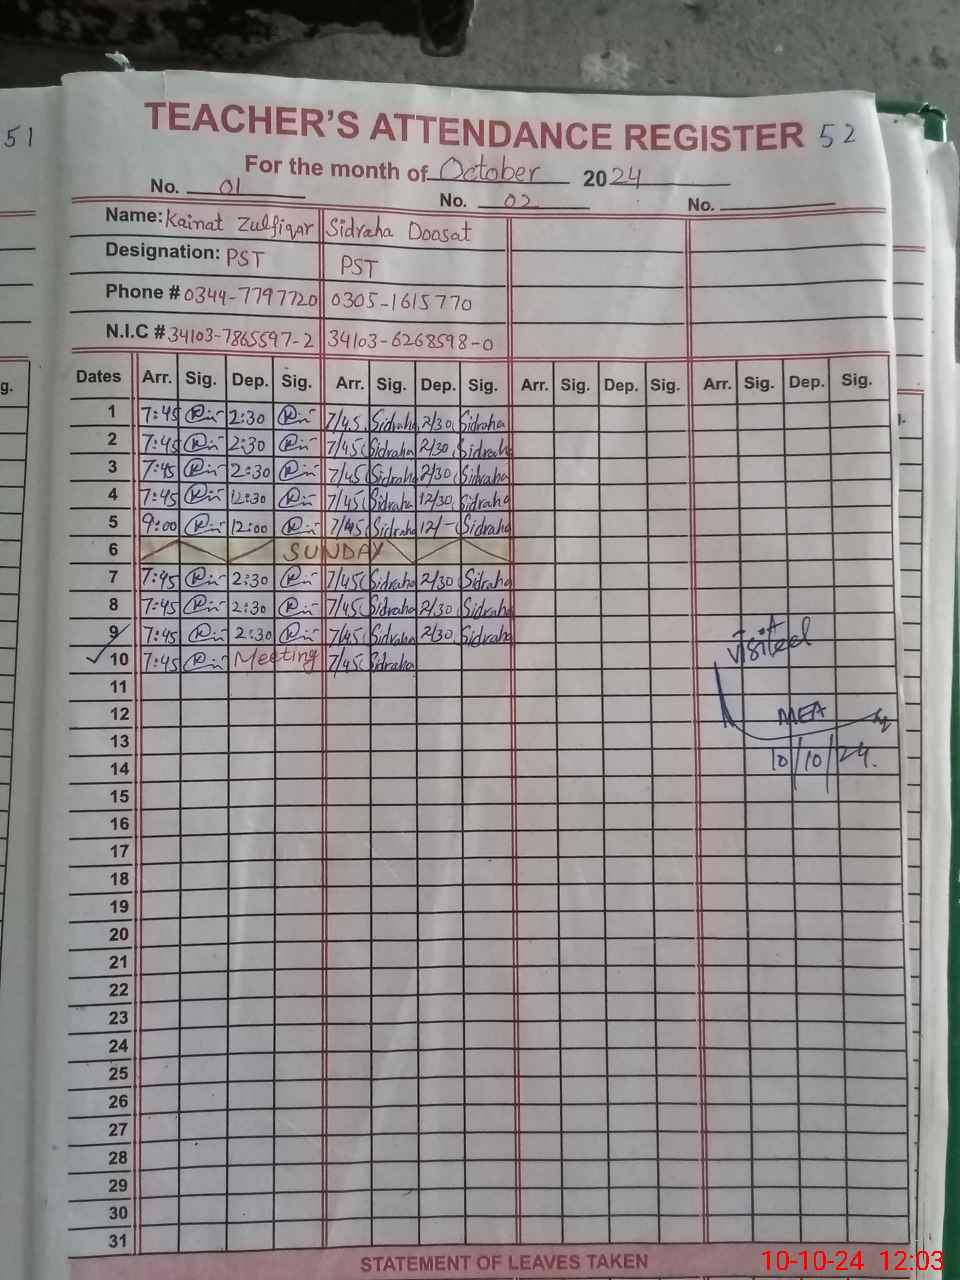 51
TEACHER'S ATTENDANCE REGISTER 52
For the month of October 2024
No. 01 No. 02 No.
Name: Kainat Zulfiqar Sidraha Doosat
Designation: PST PST
Phone # 0344-7797720 0305-1615770
N.I.C # 34103-7865597-2 34103-6268598-0
g. Dates Arr. Sig. Dep. Sig. Arr. Sig. Dep. Sig. Arr. Sig. Dep. Sig. Arr. Sig. Dep. Sig.
1 7:45 2:30 7/45 Sidraha 2/30 Sidraha
2 7:45 2:30 7/45 Sidraha 2/30 Sidraha
3 7:45 2:30 7/45 Sidraha 2/30 Sidraha
4 7:45 12:30 7/45 Sidraha 12/30 Sidraha
5 9:00 12:00 7/45 Sidraha 12/- Sidraha
6 SUNDAY
7 7:45 2:30 7/45 Sidraha 2/30 Sidraha
8 7:45 2:30 7/45 Sidraha 2/30 Sidraha
9 7:45 2:30 7/45 Sidraha 2/30 Sidraha
visited
10 7:45 Meeting 7/45 Sidraha
11
12
MEA
13
10/10/24.
14
15
16
17
18
19
20
21
22
23
24
25
26
27
28
29
30
31
STATEMENT OF LEAVES TAKEN
10-10-24 12:03